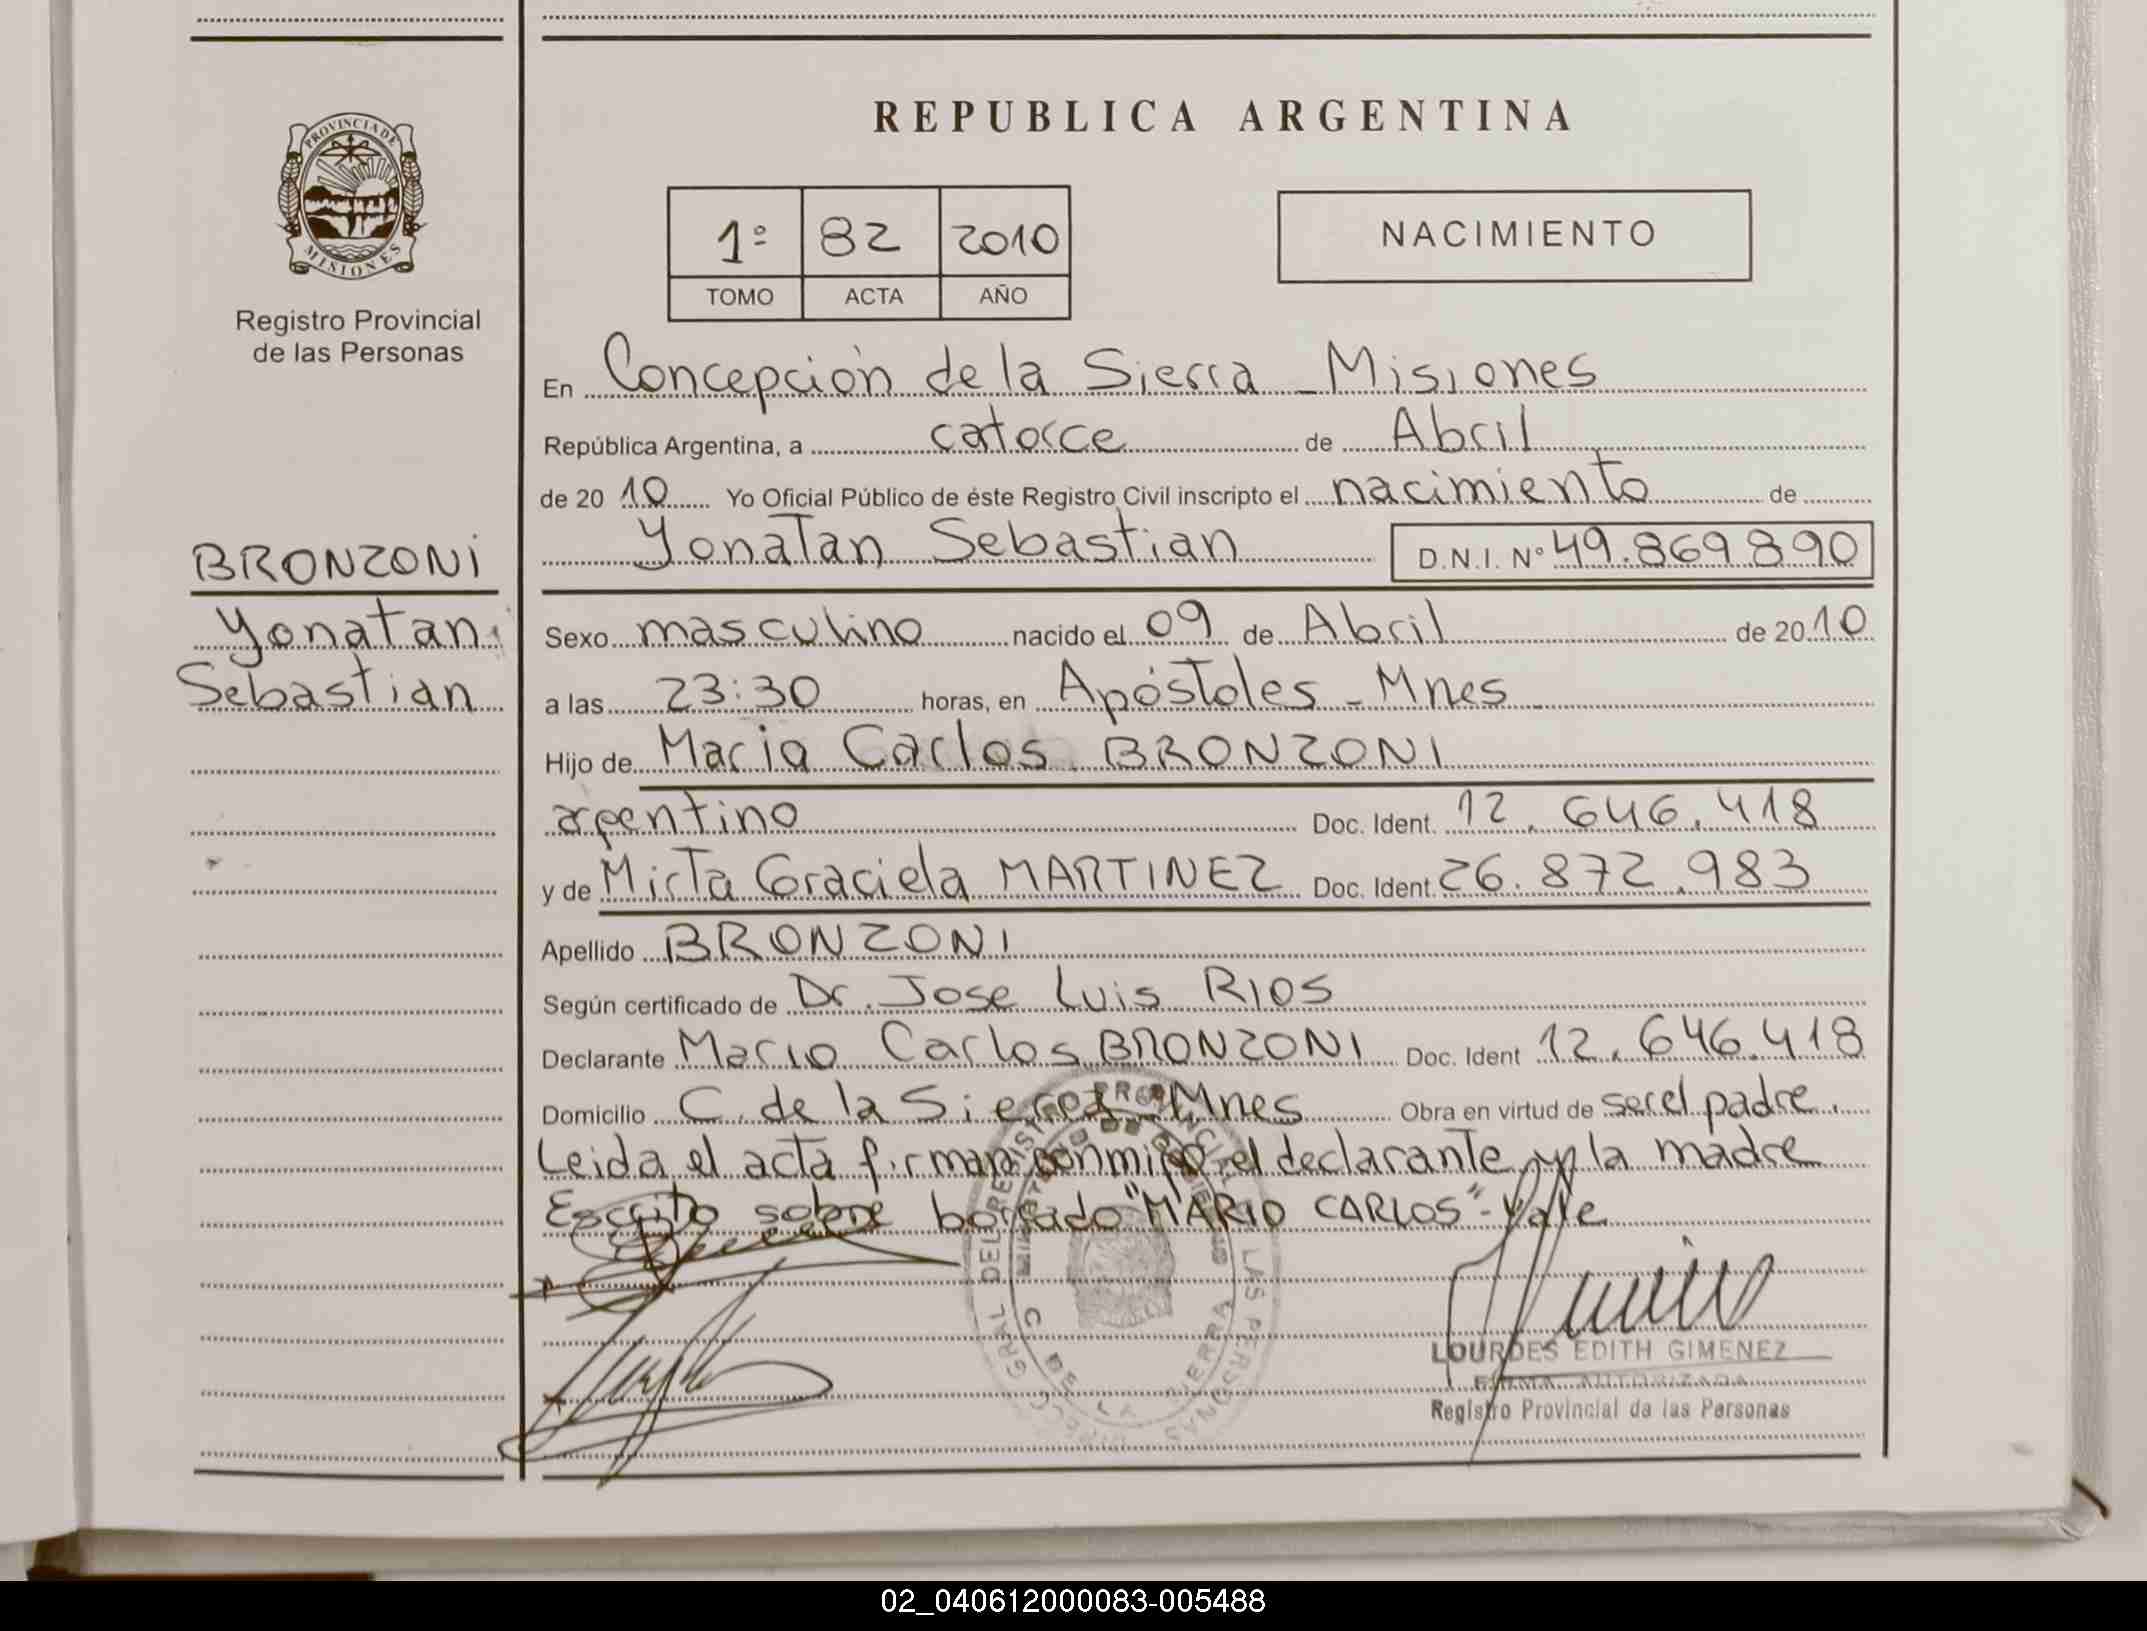 PROVINCIA DE
MISIONES
Registro Provincial
de las Personas
BRONZONI
Yonatan
Sebastian
REPUBLICA ARGENTINA
1º 82 2010
TOMO ACTA AÑO
NACIMIENTO
En Concepción de la Sierra - Misiones
República Argentina, a catorce de Abril
de 20 10 Yo Oficial Público de éste Registro Civil inscripto el nacimiento de
Yonatan Sebastian D.N.I. Nº 49.869.890
Sexo masculino nacido el 09 de Abril de 20 10
a las 23:30 horas, en Apóstoles - Mnes
Hijo de Mario Carlos BRONZONI
argentino Doc. Ident. 12.646.418
y de Mirta Graciela MARTINEZ Doc. Ident. 26.872.983
Apellido BRONZONI
Según certificado de Dr. Jose Luis RIOS
Declarante Mario Carlos BRONZONI Doc. Ident 12.646.418
Domicilio C. de la Sierra - Mnes Obra en virtud de ser el padre.
Leida el acta firman conmigo el declarante y la madre
Escrito sobre borrado "MARIO CARLOS" - Vale
LOURDES EDITH GIMENEZ
FIRMA AUTORIZADA
Registro Provincial de las Personas
02_040612000083-005488